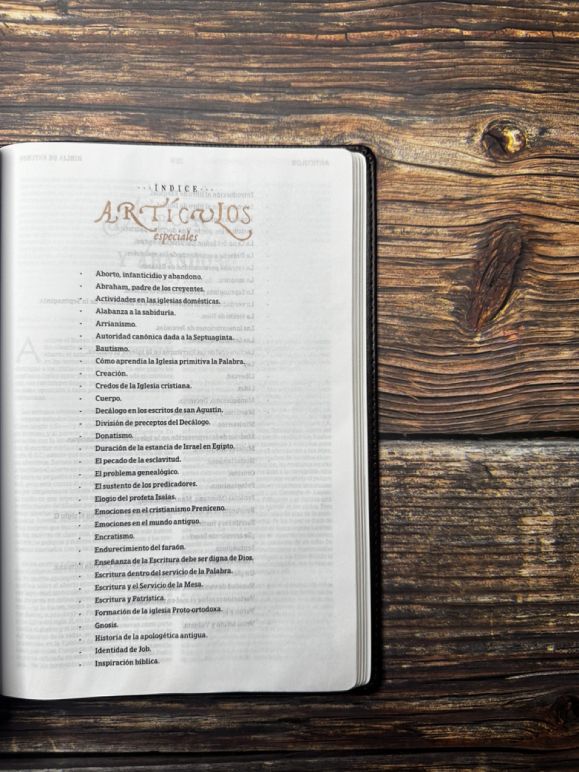 ···ÍNDICE···
ARTÍCULOS
especiales
· Aborto, infanticidio y abandono.
· Abraham, padre de los creyentes.
· Actividades en las iglesias domésticas.
· Alabanza a la sabiduría.
· Arrianismo.
· Autoridad canónica dada a la Septuaginta.
· Bautismo.
· Cómo aprendía la Iglesia primitiva la Palabra.
· Creación.
· Credos de la Iglesia cristiana.
· Cuerpo.
· Decálogo en los escritos de san Agustín.
· División de preceptos del Decálogo.
· Donatismo.
· Duración de la estancia de Israel en Egipto.
· El pecado de la esclavitud.
· El problema genealógico.
· El sustento de los predicadores.
· Elogio del profeta Isaías.
· Emociones en el cristianismo Preniceno.
· Emociones en el mundo antiguo.
· Encratismo.
· Endurecimiento del faraón.
· Enseñanza de la Escritura debe ser digna de Dios.
· Escritura dentro del servicio de la Palabra.
· Escritura y el Servicio de la Mesa.
· Escritura y Patrística.
· Formación de la iglesia Proto-ortodoxa.
· Gnosis.
· Historia de la apologética antigua.
· Identidad de Job.
· Inspiración bíblica.